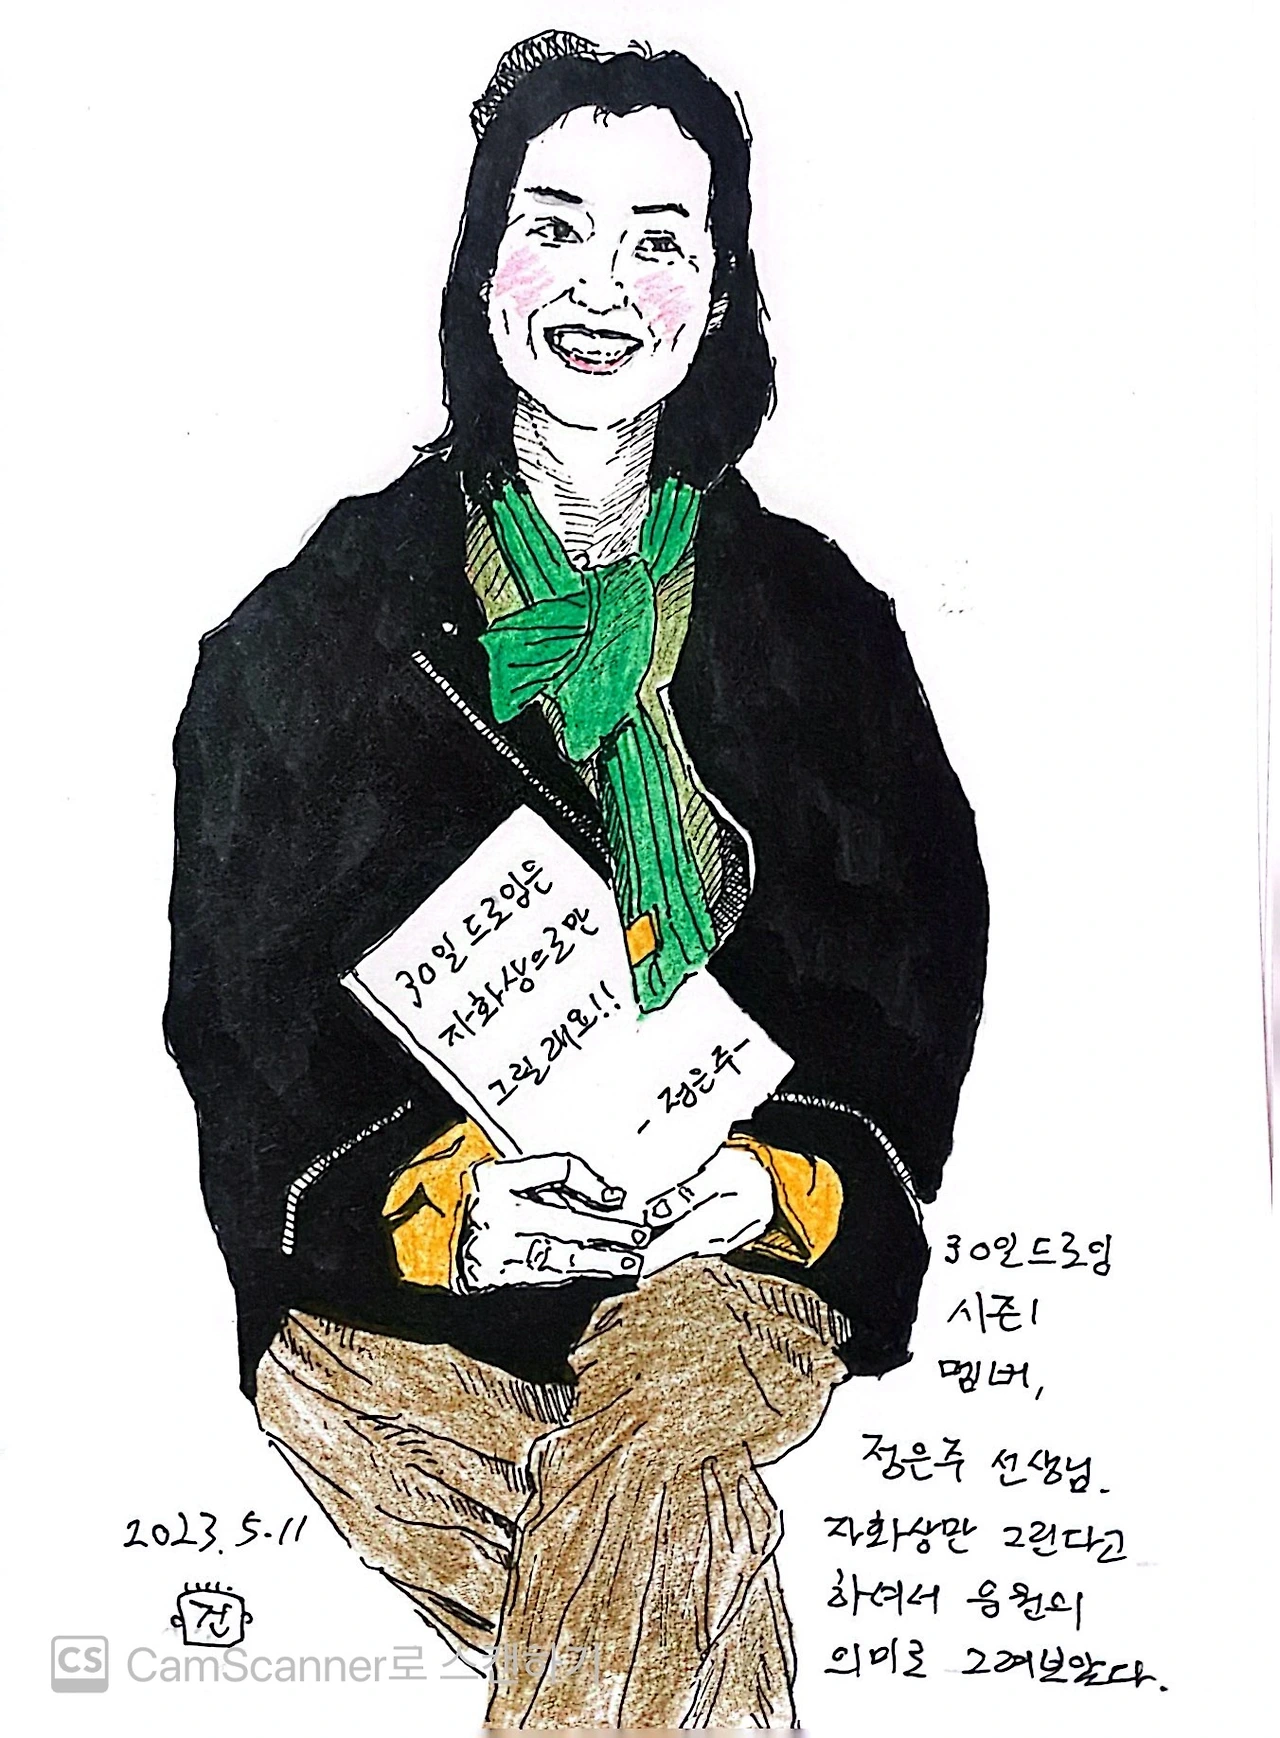 30일 드로잉은
자화상으로만
그릴래요!!
- 정은주-
30일드로잉
시즌1
멤버,
정은주 선생님.
자화상만 그린다고
하셔서 응원의
의미로 그려보았다.
2023.5.11
건
CS CamScanner로 스캔하기